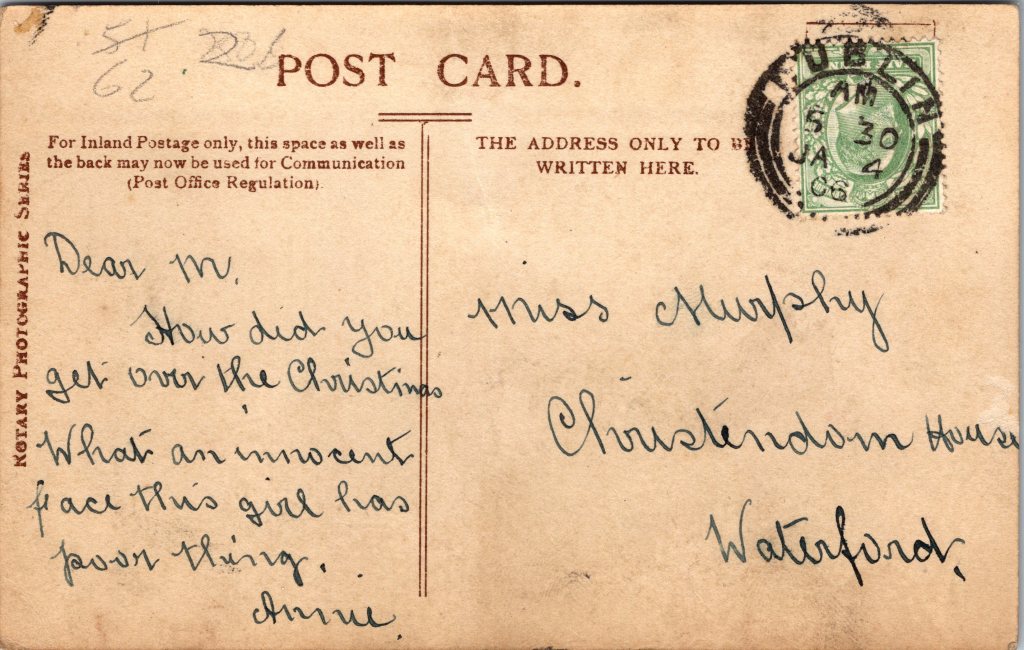 5+
62
POST CARD.
For Inland Postage only, this space as well as
the back may now be used for Communication
(Post Office Regulation).
THE ADDRESS ONLY TO BE
WRITTEN HERE.
DUBLIN
AM
5 30
JA 4
06
ROTARY PHOTOGRAPHIC SERIES
Dear M.
How did you
get over the Christmas
What an innocent
face this girl has
poor thing.
Annie.
Miss Murphy
Christendom House
Waterford.